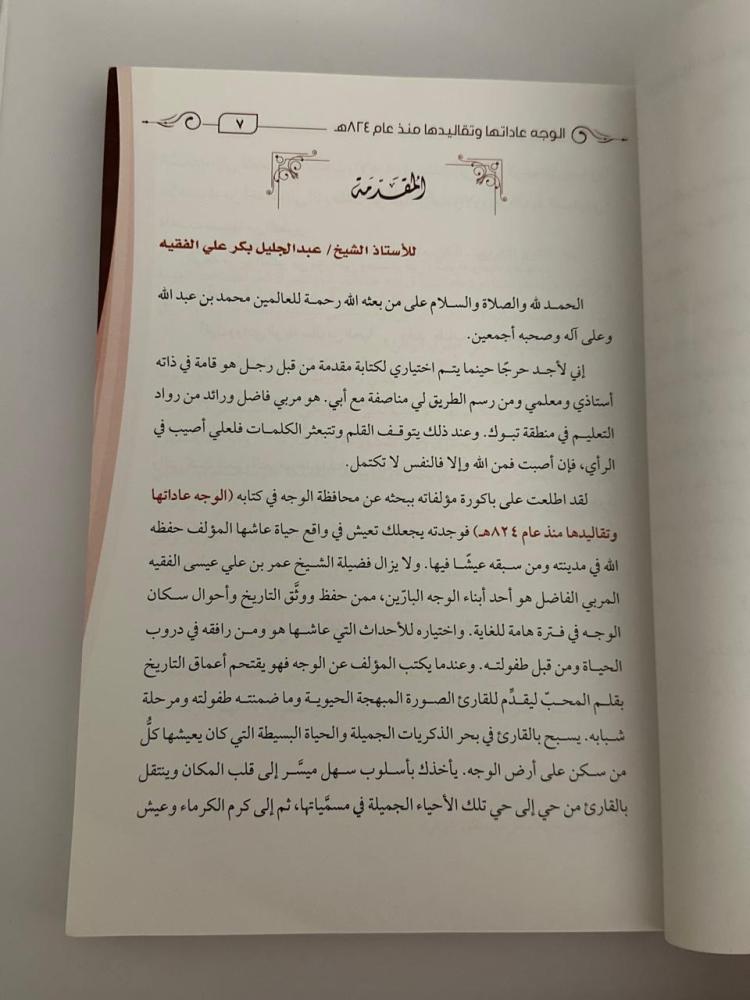 الوجه عاداتها وتقاليدها منذ عام ٨٢٤هـ
٧
المقدمة
للأستاذ الشيخ/ عبدالجليل بكر علي الفقيه
الحمد لله والصلاة والسلام على من بعثه الله رحمة للعالمين محمد بن عبد الله
وعلى آله وصحبه أجمعين.
إني لأجد حرجًا حينما يتم اختياري لكتابة مقدمة من قبل رجل هو قامة في ذاته
أستاذي ومعلمي ومن رسم الطريق لي مناصفة مع أبي. هو مربي فاضل ورائد من رواد
التعليم في منطقة تبوك. وعند ذلك يتوقف القلم وتتبعثر الكلمات فلعلي أصيب في
الرأي، فإن أصبت فمن الله وإلا فالنفس لا تكتمل.
لقد اطلعت على باكورة مؤلفاته ببحثه عن محافظة الوجه في كتابه (الوجه عاداتها
وتقاليدها منذ عام ٨٢٤هـ) فوجدته يجعلك تعيش في واقع حياة عاشها المؤلف حفظه
الله في مدينته ومن سبقه عيشًا فيها. ولا يزال فضيلة الشيخ عمر بن علي عيسى الفقيه
المربي الفاضل هو أحد أبناء الوجه البارّين، ممن حفظ ووثَّق التاريخ وأحوال سكان
الوجه في فترة هامة للغاية. واختياره للأحداث التي عاشها هو ومن رافقه في دروب
الحياة ومن قبل طفولته. وعندما يكتب المؤلف عن الوجه فهو يقتحم أعماق التاريخ
بقلم المحبّ ليقدِّم للقارئ الصورة المبهجة الحيوية وما ضمنته طفولته ومرحلة
شبابه. يسبح بالقارئ في بحر الذكريات الجميلة والحياة البسيطة التي كان يعيشها كلُّ
من سكن على أرض الوجه. يأخذك بأسلوب سهل ميسَّر إلى قلب المكان وينتقل
بالقارئ من حي إلى حي تلك الأحياء الجميلة في مسمَّياتها، ثم إلى كرم الكرماء وعيش